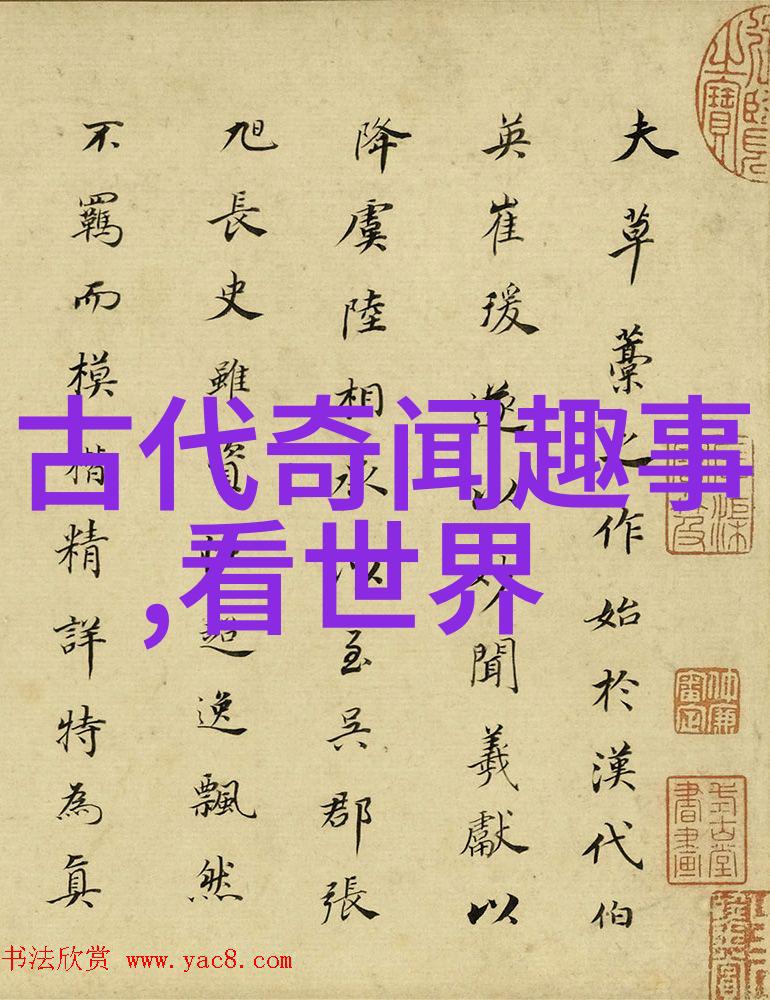 夫草藁之作始於漢代伯
英崔瑗遂以妙聞羲獻以
降虞陸相承以至吳郡張
旭長史雖資超逸飄然
不羈而模楷精詳特為真
古代奇闻趣事
,看世界
书法欣赏 www.yac8.com